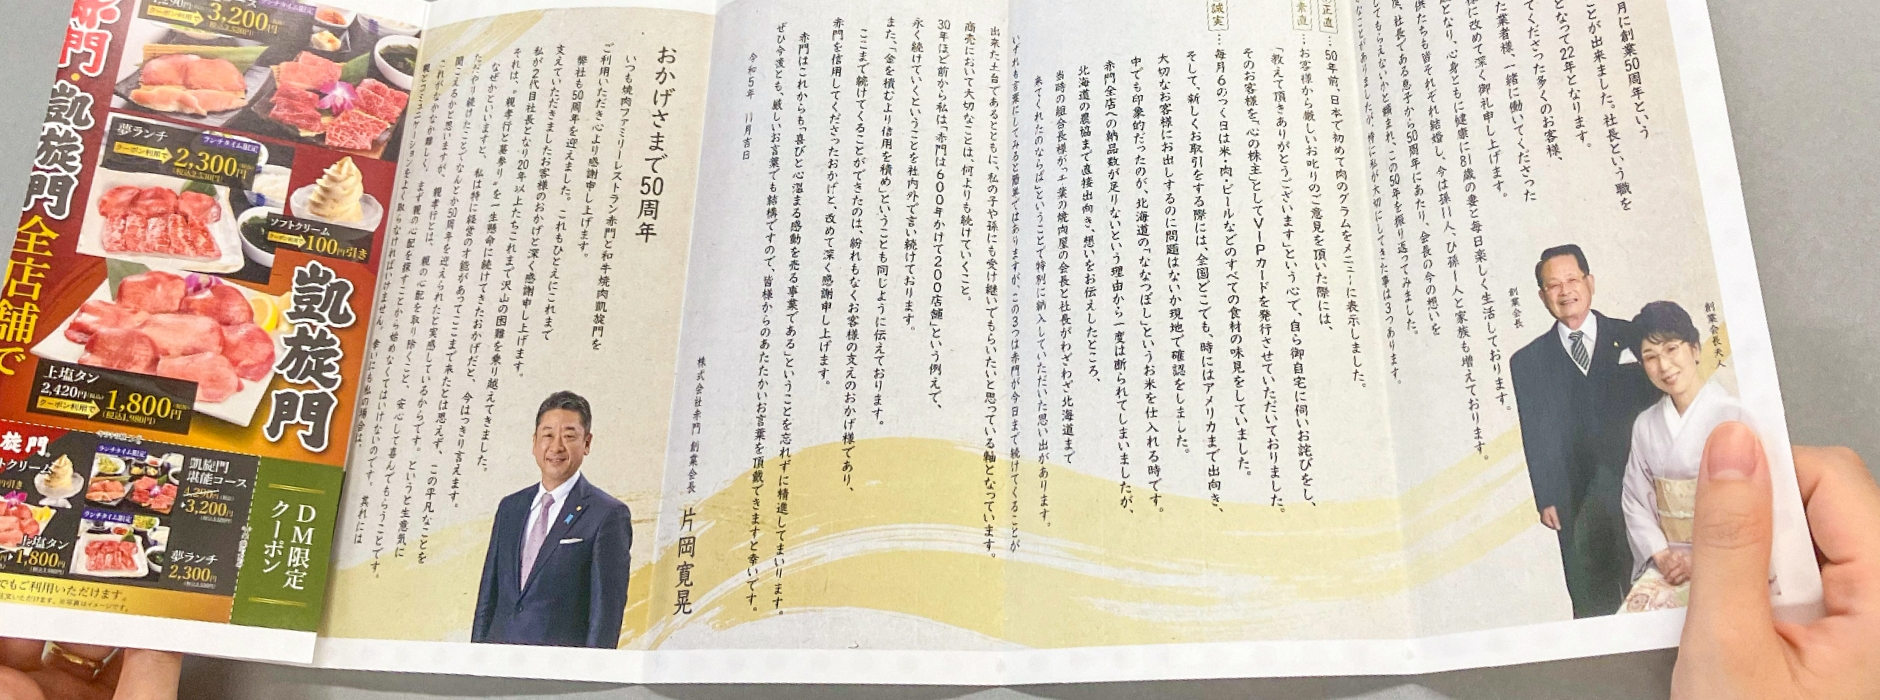 月に創業50周年という
ことが出来ました。社長という職を
となって22年となります。
てくださった多くのお客様、
た業者様、一緒に働いてくださった
様に改めて深く御礼申し上げます。
となり、心身ともに健康に81歳の妻と毎日楽しく生活しております。
供たちも皆それぞれ結婚し、今は孫11人、ひ孫1人と家族も増えております。
度、社長である息子から50周年にあたり、会長の今の想いを
してもらえないかと頼まれ、この50年を振り返ってみました。
特に私が大切にしてきた事は3つあります。
創業会長
創業会長夫人
正直…50年前、日本で初めて肉のグラムをメニューに表示しました。
素直…お客様から厳しいお叱りのご意見を頂いた際には、
「教えて頂きありがとうございます」という心で、自ら御自宅に伺いお詫びをし、
そのお客様を、「心の株主」としてVIPカードを発行させていただいておりました。
誠実…毎月6のつく日は米・肉・ビールなどのすべての食材の味見をしていました。
そして、新しくお取引をする際には、全国どこでも、時にはアメリカまで出向き、
大切なお客様にお出しするのに問題はないか現地で確認をしました。
中でも印象的だったのが、北海道の「ななつぼし」というお米を仕入れる時です。
赤門全店への納品数が足りないという理由から一度は断られてしまいましたが、
北海道の農協まで直接出向き、想いをお伝えしたところ、
当時の組合長様が「千葉の焼肉屋の会長と社長がわざわざ北海道まで
来てくれたのならば」ということで特別に納入していただいた思い出があります。
いずれも言葉にしてみると簡単ではありますが、この3つは赤門が今日まで続けてくることが
出来た土台であるとともに、私の子や孫にも受け継いでもらいたいと思っている軸となっています。
商売において大切なことは、何よりも続けていくこと。
30年ほど前から私は「赤門は600年かけて200店舗」という例えで、
永く続けていくということを社内外で言い続けております。
また、「金を積むより信用を積め」ということも同じように伝えております。
ここまで続けてくることができたのは、紛れもなくお客様の支えのおかげ様であり、
赤門を信用してくださったおかげと、改めて深く感謝申し上げます。
赤門はこれからも「喜びと心温まる感動を売る事業である」ということを忘れずに精進してまいります。
ぜひ今後とも、厳しいお言葉でも結構ですので、皆様からのあたたかいお言葉を頂戴できますと幸いです。
令和5年 11月吉日
株式会社赤門 創業会長 片岡寛晃
おかげさまで50周年
いつも焼肉ファミリーレストラン赤門と和牛焼肉凱旋門を
ご利用いただき心より感謝申し上げます。
弊社も50周年を迎えました。これもひとえにこれまで
支えていただきましたお客様のおかげと深く感謝申し上げます。
私が2代目社長となり20年以上たちこれまで沢山の困難を乗り越えてきました。
それは、“親孝行と墓参り”を一生懸命に続けてきたおかげだと、今はっきり言えます。
なぜかといいますと、私は特に経営の才能があってここまで来たとは思えず、この平凡なことを
ただやり続けたことでなんとか50周年を迎えられたと実感しているからです。というと生意気に
聞こえるかと思いますが、親孝行とは、親の心配を取り除くこと、安心して喜んでもらうことです。
これがなかなか難しく、まず親の心配を探すことから始めなくてはいけないのです。其れには
親とコミュニケーションをよく取らなければいけません。幸いにも私の場合は、
赤門・凱旋門全店舗で
コース
クーポン利用で
3,200円
(税込3,520円)
ランチタイム限定
夢ランチ
ランチタイム限定
クーポン利用で
2,300円
(税込2,530円)
ソフトクリーム
クーポン利用で
100円引き
凱旋門
上塩タン
2,420円(税込)
クーポン利用で
1,800円
(税込1,980円)
旋門
トクリーム
円引き
ランチタイム限定
凱旋門
堪能コース
4,290円(税込)
3,200円
(税込3,520円)
上塩タン
1,800円
(税込1,980円)
ランチタイム限定
夢ランチ
2,300円
(税込2,530円)
でもご利用いただけます。
DM限定
クーポン